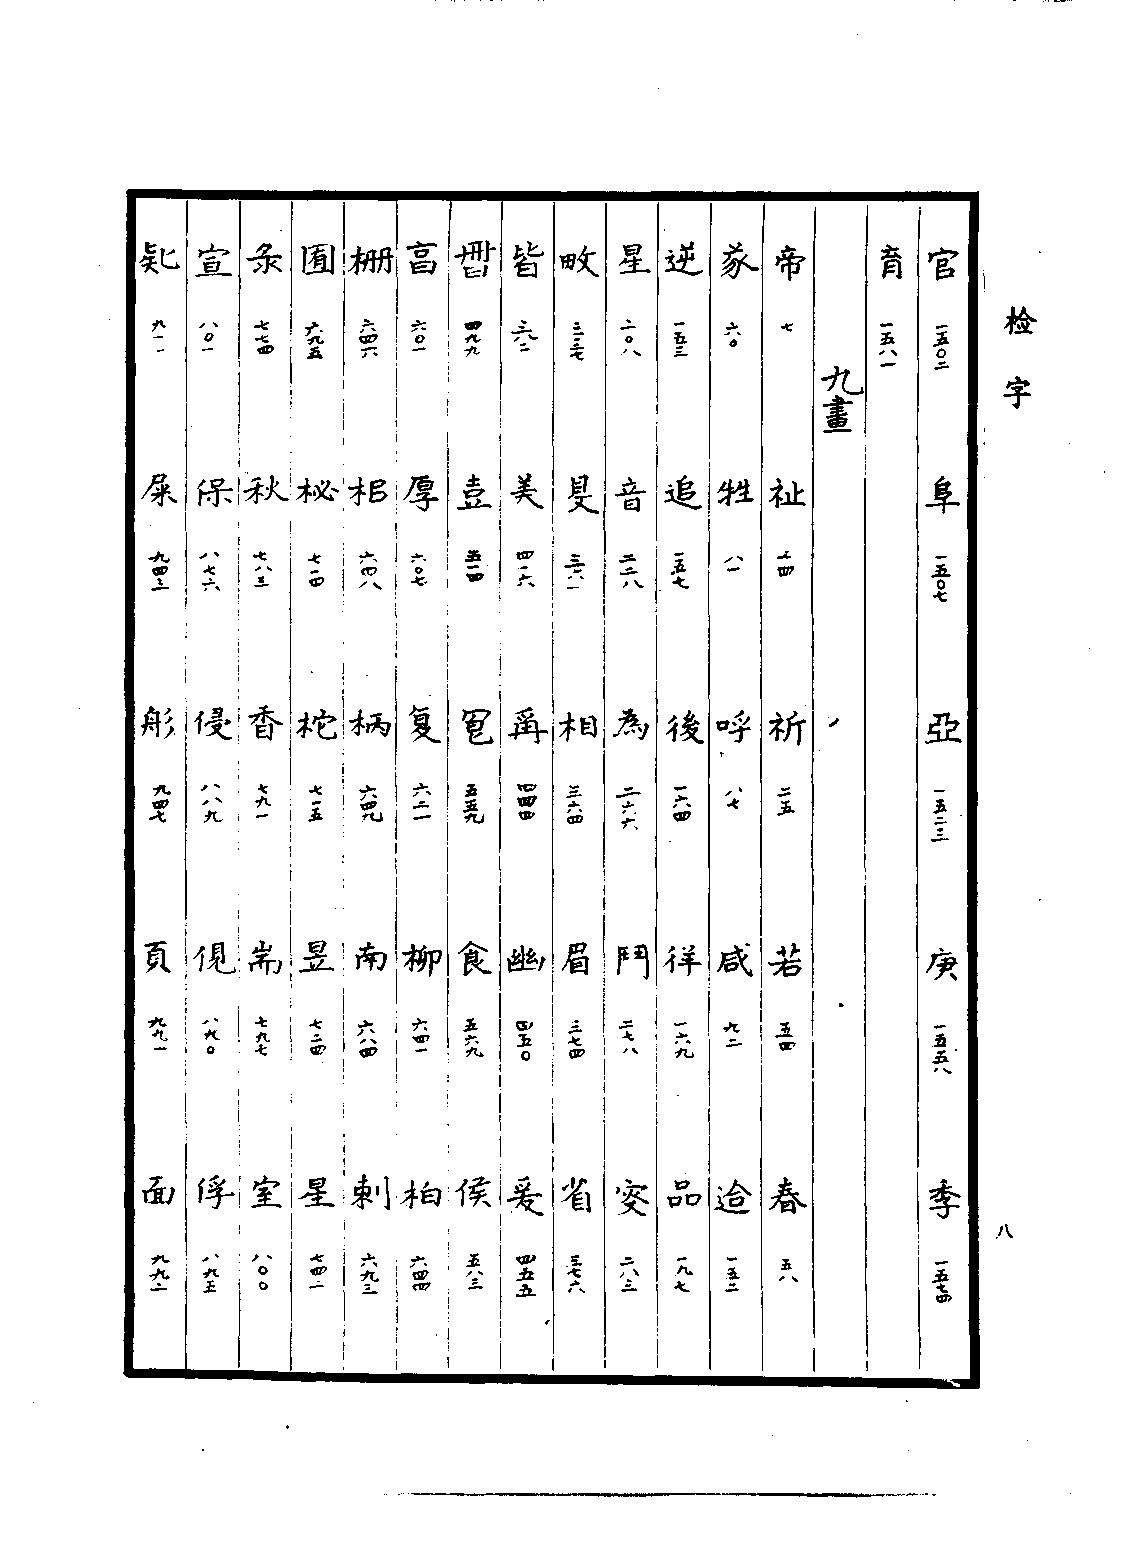 检字
八
官 一五〇二 阜 一五〇七 亞 一五二三 庚 一五五八 季 一五七四
育 一五八一
九畫
帝 七 祉 一四 祈 二五 若 五四 春 五八
六〇 牲 八一 呼 八七 咸 九二 迨 一五二
逆 一五三 追 一五七 後 一六四 徉 一六九 品 一九七
星 二〇八 音 二二八 為 二六六 鬥 二七八 叜 二八三
畋 三三七 旻 三六一 相 三六四 眉 三七四 省 三七六
皆 三八二 美 四一六 爯 四四四 幽 四五〇 爰 四五五
四九九 壴 五一四 五五九 食 五六九 侯 五八三
亯 六〇一 厚 六〇七 复 六二一 柳 六四一 柏 六四四
柵 六四六 梠 六四八 柄 六四九 南 六八四 剌 六九三
囿 六九五 柲 七一四 柁 七一五 昱 七二四 星 七四二
彔 七七四 秋 七八三 香 七九一 耑 七九七 室 八〇〇
宣 八〇一 保 八七六 侵 八八九 俔 八九〇 俘 八九五
九一一 屎 九四三 彤 九四七 頁 九九一 面 九九二